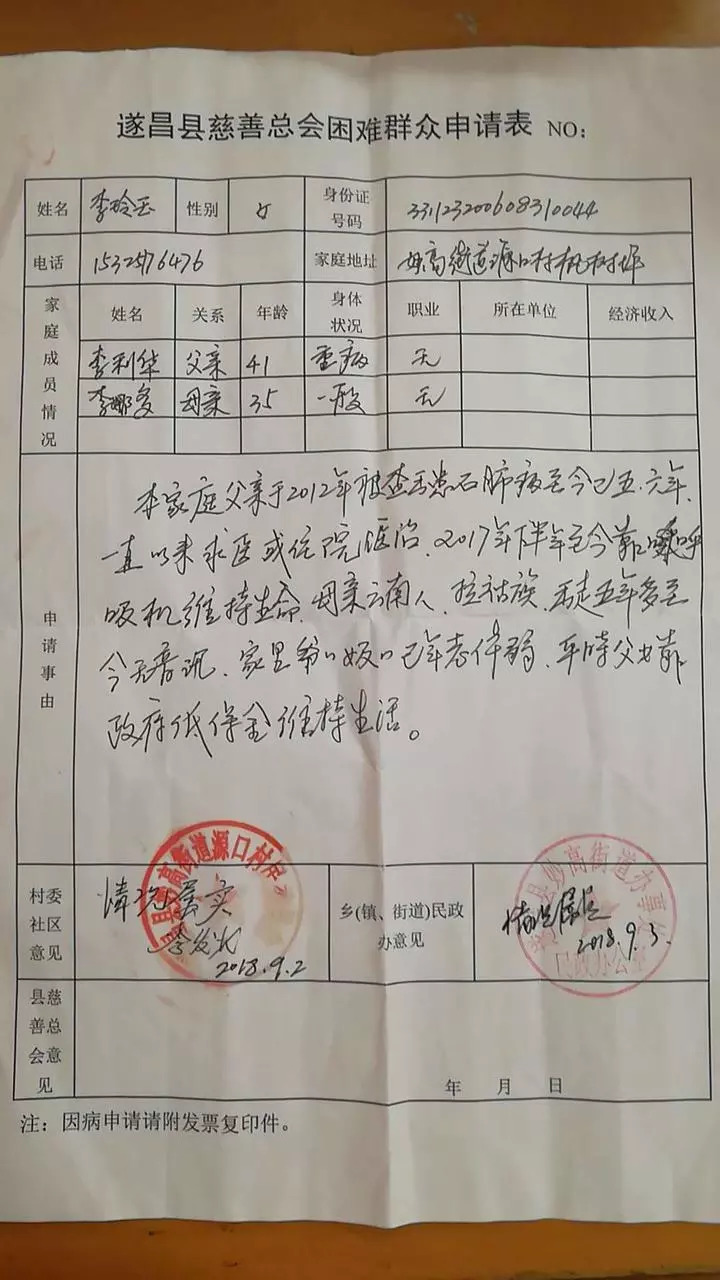 遂昌县慈善总会困难群众申请表 NO：
姓名 李玲玉 性别 女 身份证号码 331123200608310044
电话 1532576476 家庭地址 妙高街道源口村
家庭成员情况 姓名 关系 年龄 身体状况 职业 所在单位 经济收入
李利华 父亲 41 重病 无
李娜 母亲 35 一般 无
申请事由
本家庭父亲于2012年被查出患石肺病至今已五.六年.
一直以来求医或住院医治.2017年下半年至今靠呼
吸机维持生命.母亲云南人.拉祜族.走五年多至
今无音讯.家里爷奶已年老体弱.平时父女靠
政府低保金维持生活。
村委社区意见 情况属实
2018.9.2
乡(镇、街道)民政办意见 情况属实
2018.9.3.
县慈善总会意见
年 月 日
注：因病申请请附发票复印件。